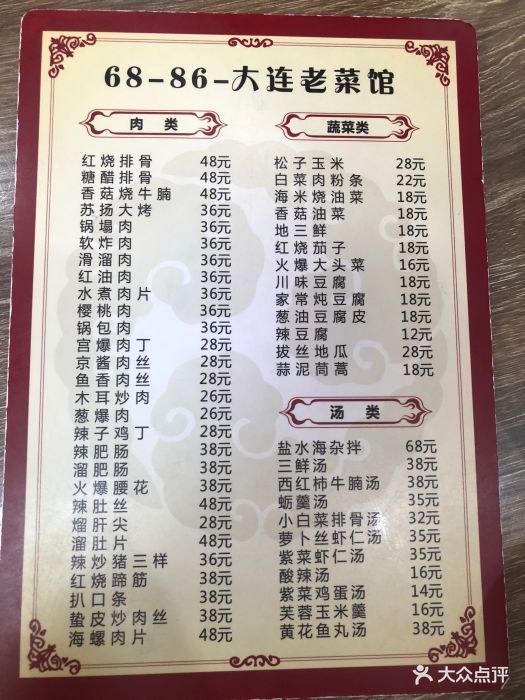 68-86-大连老菜馆
肉 类
红烧排骨 48元
糖醋排骨 48元
香菇烧牛腩 48元
苏扬大烤 36元
锅塌肉 36元
软炸肉 36元
滑溜肉 36元
红油肉 36元
水煮肉片 36元
樱桃肉 36元
锅包肉 36元
宫爆肉丁 28元
京酱肉丝 28元
鱼香肉丝 28元
木耳炒肉 26元
葱爆肉 26元
辣子鸡丁 28元
辣肥肠 38元
溜肥肠 38元
火爆腰花 38元
辣肚丝 48元
熘肝尖 28元
溜肚片 48元
辣炒猪三样 36元
红烧蹄筋 38元
扒口条 38元
蛰皮炒肉丝 38元
海螺肉片 48元
蔬菜类
松子玉米 28元
白菜肉粉条 22元
海米烧油菜 18元
香菇油菜 18元
地三鲜 18元
红烧茄子 18元
火爆大头菜 16元
川味豆腐 18元
家常炖豆腐 18元
葱油豆腐皮 18元
辣豆腐 12元
拔丝地瓜 28元
蒜泥茼蒿 18元
汤 类
盐水海杂拌 68元
三鲜汤 38元
西红柿牛腩汤 38元
蛎羹汤 35元
小白菜排骨汤 32元
萝卜丝虾仁汤 35元
紫菜虾仁汤 35元
酸辣汤 16元
紫菜鸡蛋汤 14元
芙蓉玉米羹 16元
黄花鱼丸汤 38元
大众点评